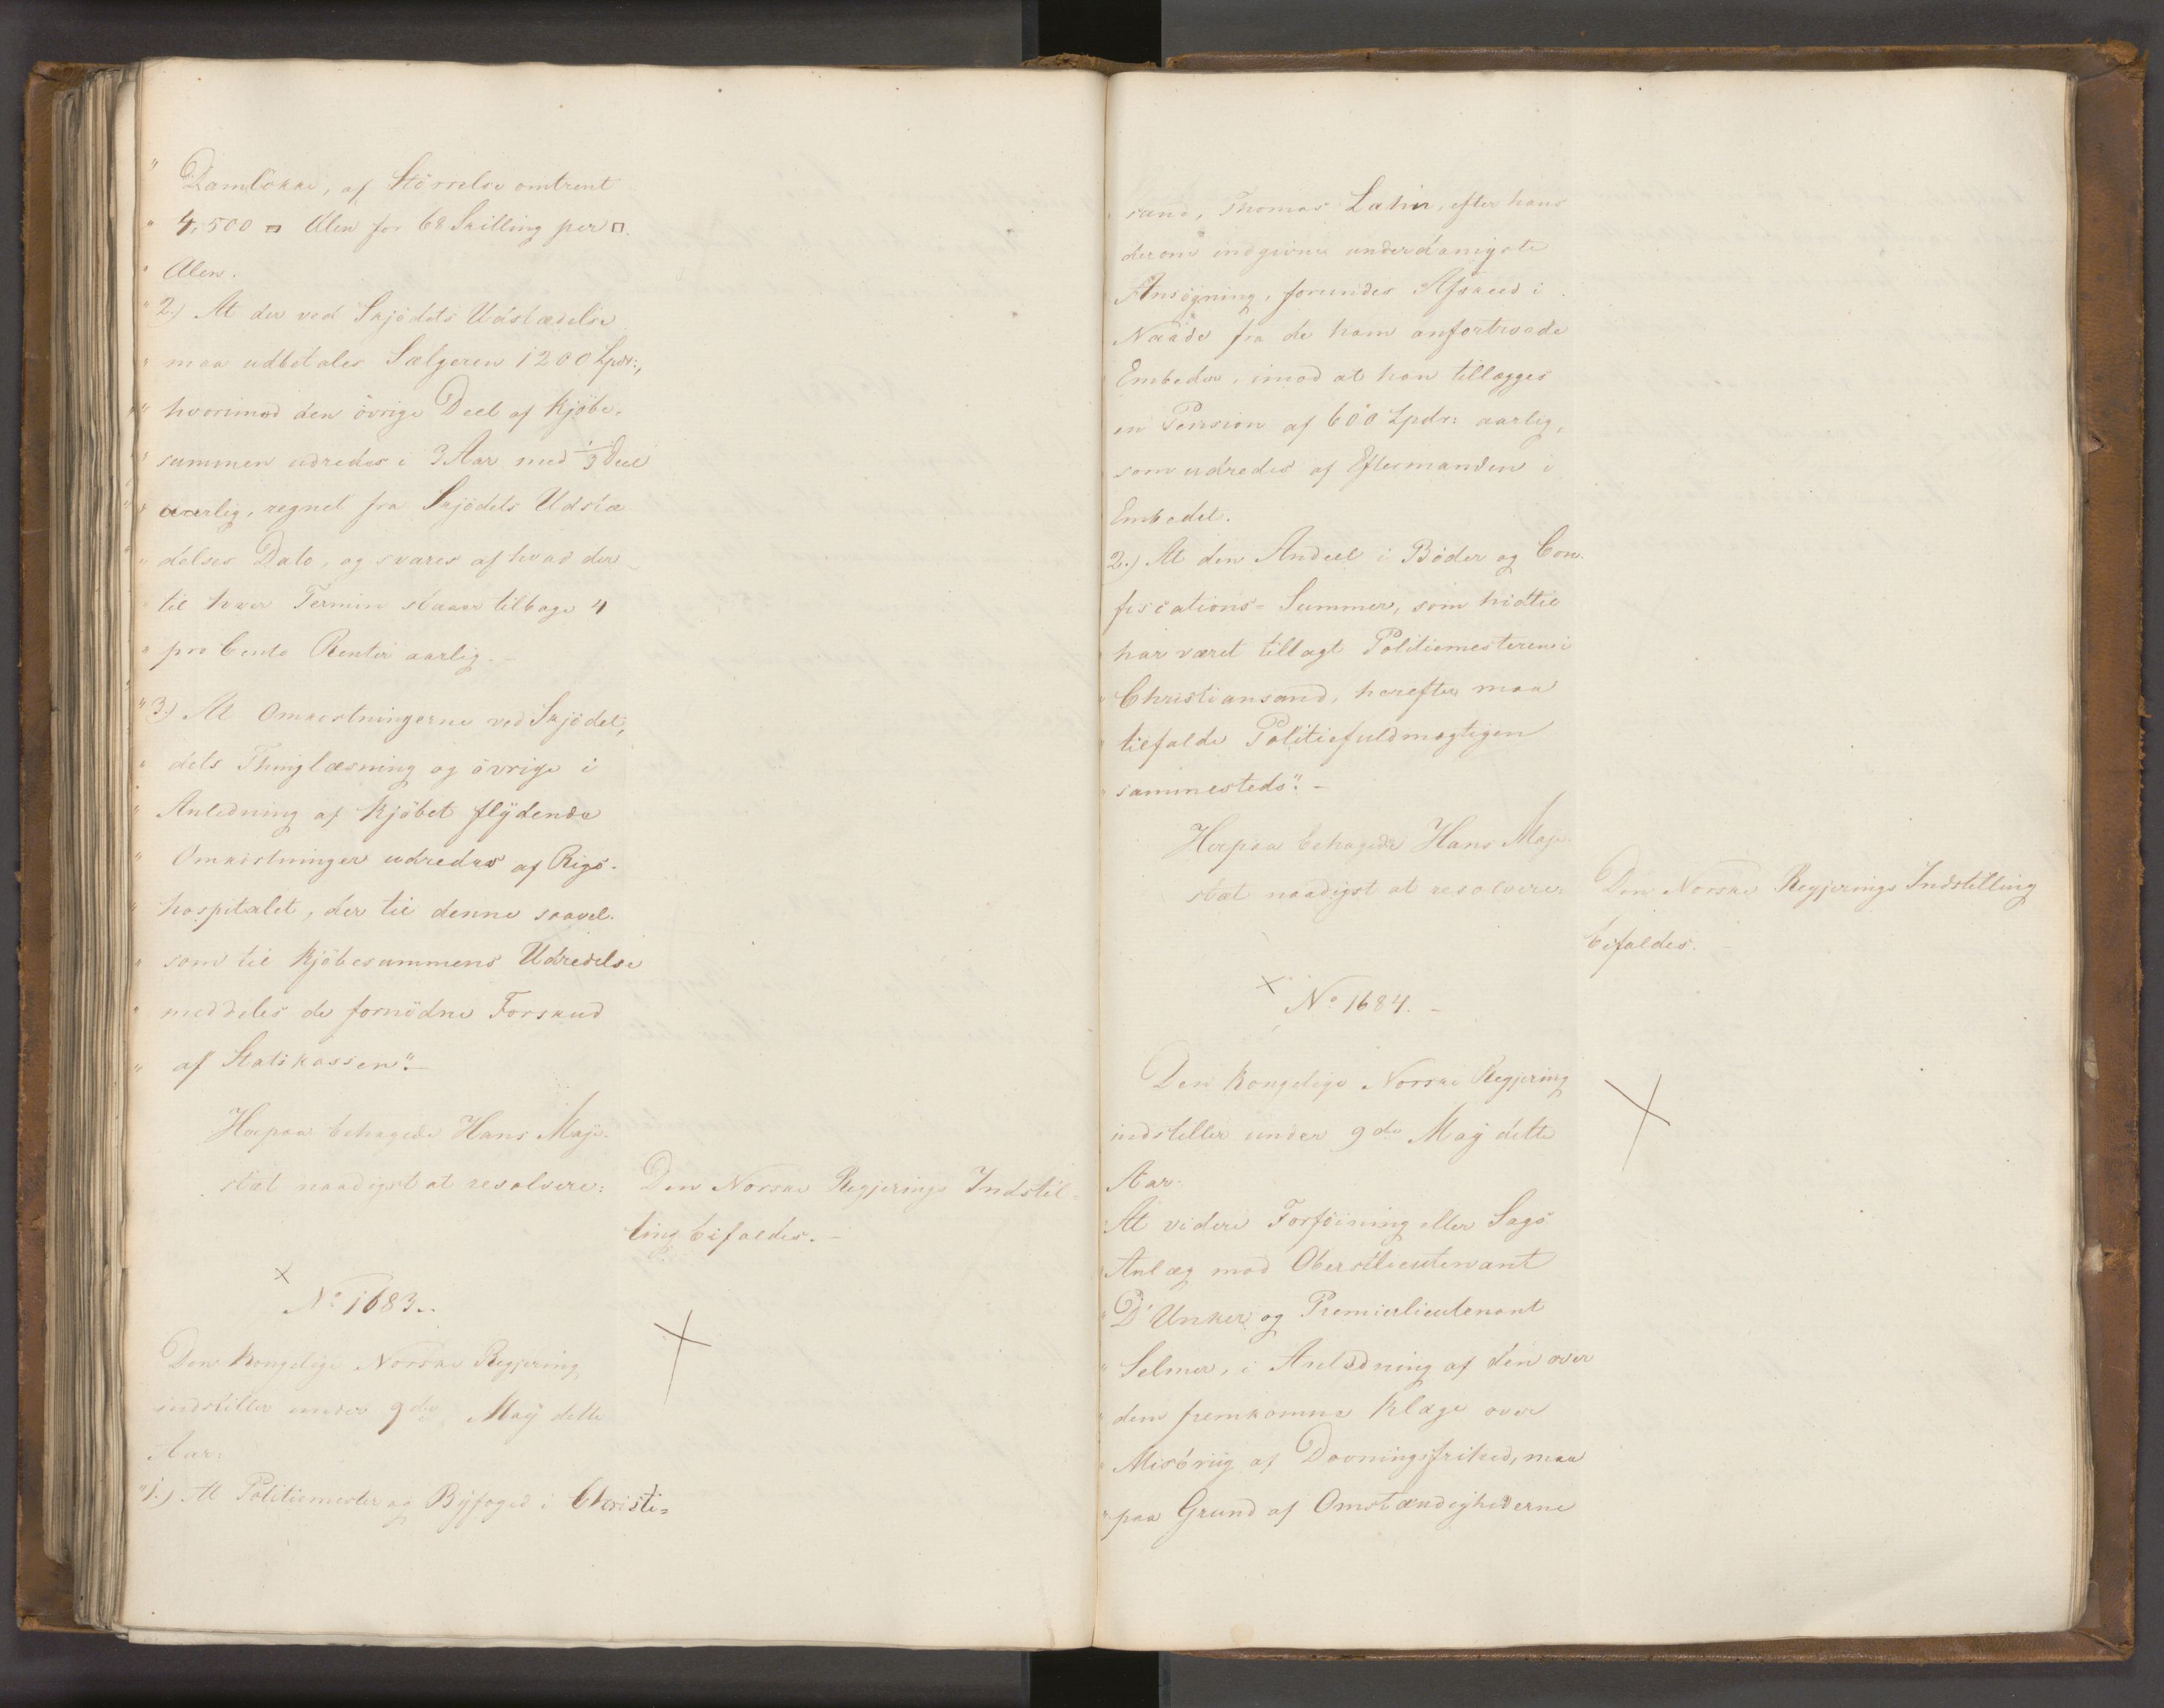 " Damløkke, af Størrelse omtrent
" 4,500 □ Alen for 68 Skilling per □.
" Alen.
" 2.) At der ved Skjödets Udstædelse
" maa udbetales Sælgeren 1200 Spdr:,
" hvorimod den övrige Deel af Kjöbe-
" summen udredes i 3 Aar med 1/3 Deel
" aarlig, regnet fra Skjödets Udstæ
" delses Dato, og svares af hvad der
til hver Termin staaer tilbage 4
" pro Cento Renter aarlig. –
" 3.) At Omkostningerne ved Skjödet,
" dets Thinglæsning og övrige i
" Anledning af Kjöbet flÿdende
" Omkostninger udredes af Rigs-
" hospitalet, der til denne saavel-
" som til Kjöbesummens Udredelse
" meddeles de fornödne Forskud
" af Statskassen". –
Herpaa behagede Hans Maje-
stæt naadigst at resolvere:
Den Norske Regjerings Indstil-
ling bifaldes. –
No 1683.
Den Kongelige Norske Regjering
indstiller under 9de Maÿ dette
Aar:
" 1.) At Politiemester og Bÿfoged i Christi=
sand, Thomas Lahn, efter hans
derom indgivne underdanigste
Ansögning, forundes Afskeed i
Naade fra de ham anfortroede
Embeder, imod at han tillægges
en Pension af 600 Spdr: aarlig,
som udredes af Eftermanden i
Embedet.
2.) At den Andeel i Böder og Con-
fiscations= Summer, som hidtil
har været tillagt Politiemesteren i
" Christiansand, herefter maa
" tilfalde Politiefuldmægtigen
" sammesteds". –
Herpaa behagede Hans Maje-
stæt naadigst at resolvere:
Den Norske Regjerings Indstilling
bifaldes. –
No 1684. –
Den Kongelige Norske Regjering
indstiller under 9de Maÿ dette
Aar:
At videre Forföining eller Sags
" Anlæg mod Oberstlieutenant
" D'Unker og Premierlieutenant
" Selmer, i Anledning af den over
" dem fremkomne Klage over
" Misbrug af Dovningsfrihed, maa
" paa Grund af Omstændighederne